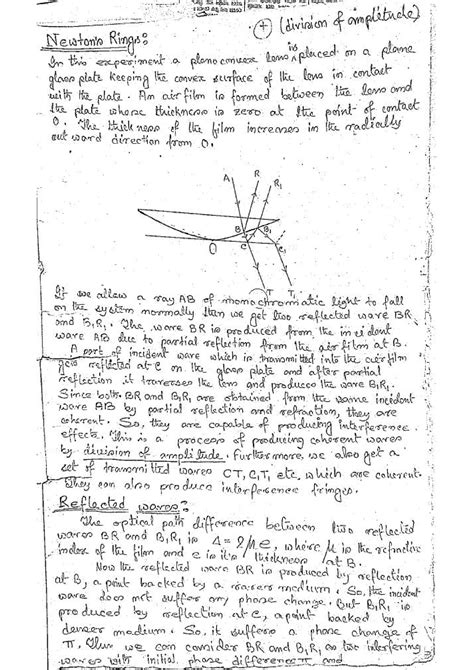 (division of amplitude)
Newton's Rings:
In this experiment a planoconvex lens is placed on a plane
glass plate keeping the convex surface of the lens in contact
with the plate. An air film is formed between the lens and
the plate whose thickness is zero at the point of contact
O. The thickness of the film increases in the radially
outward direction from O.
A R R₁
B B₁
O C C₁
T T₁
If we allow a ray AB of monochromatic light to fall
on the system normally then we get two reflected wave BR
and B₁R₁. The wave BR is produced from the incident
wave AB due to partial reflection from the air film at B.
A part of incident wave which is transmitted into the air film
gets reflected at C on the glass plate and after partial
reflection it traverses the lens and produces the wave B₁R₁.
Since both BR and B₁R₁ are obtained from the same incident
wave AB by partial reflection and refraction, they are
coherent. So, they are capable of producing interference
effects. This is a process of producing coherent waves
by division of amplitude. Furthermore, we also get a
set of transmitted waves CT, C₁T₁ etc. which are coherent.
They can also produce interference fringes.
Reflected waves:
The optical path difference between two reflected
waves BR and B₁R₁ is Δ = 2μe, where μ is the refractive
index of the film and e is it's thickness at B.
Now the reflected wave BR is produced by reflection
at B, a point backed by a rarer medium. So, the incident
wave does not suffer any phase change. But B₁R₁ is
produced by reflection at C, a point backed by
denser medium. So, it suffers a phase change of
π. Thus we can consider BR and B₁R₁ as two interfering
waves with initial phase difference π and